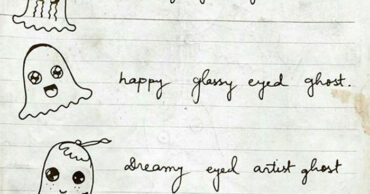 happy glassy eyed ghost.
dreamy eyed artist ghost